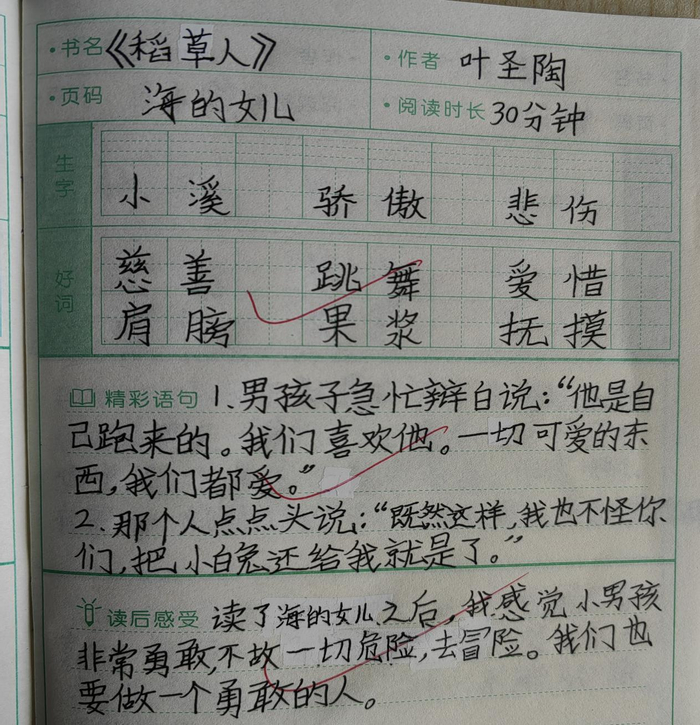 书名 《稻草人》 作者 叶圣陶
页码 海的女儿 阅读时长 30分钟
生字 小溪 骄傲 悲伤
好词 慈善 跳舞 爱惜
肩膀 果浆 抚摸
精彩语句 1.男孩子急忙辩白说:“他是自
己跑来的。我们喜欢他。一切可爱的东
西,我们都爱。”
2.那个人点点头说:“既然这样,我也不怪你
们,把小白兔还给我就是了。”
读后感受 读了海的女儿之后,我感觉小男孩
非常勇敢,不故一切危险,去冒险。我们也
要做一个勇敢的人。